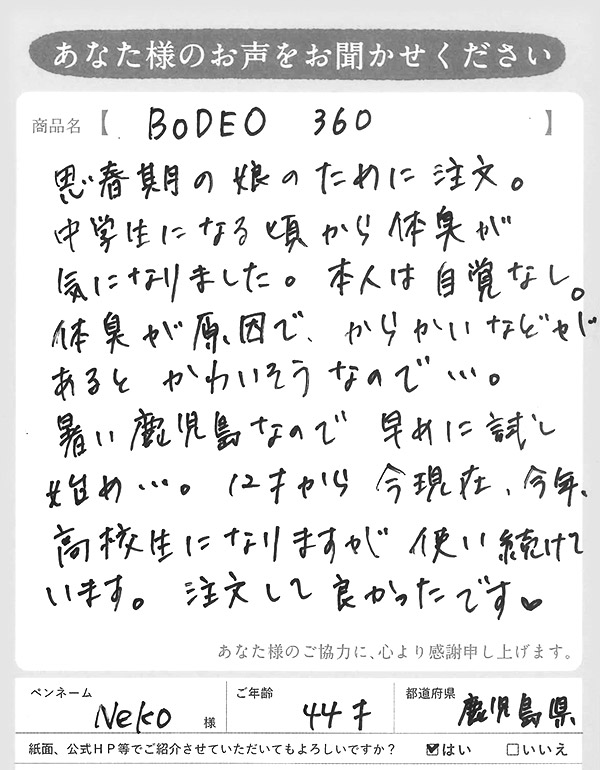 あなた様のお声をお聞かせください
商品名【 BODEO 360 】
思春期の娘のために注文。
中学生になる頃から体臭が
気になりました。本人は自覚なし。
体臭が原因で、からかいなどが
あるとかわいそうなので…。
暑い鹿児島なので早めに試し
始め…。12才から今現在、今年、
高校生になりますが使い続けて
います。注文して良かったです♥
あなた様のご協力に、心より感謝申し上げます。
ペンネーム Neko 様 ご年齢 44才 都道府県 鹿児島県
紙面、公式HP等でご紹介させていただいてもよろしいですか? ☑はい □いいえ